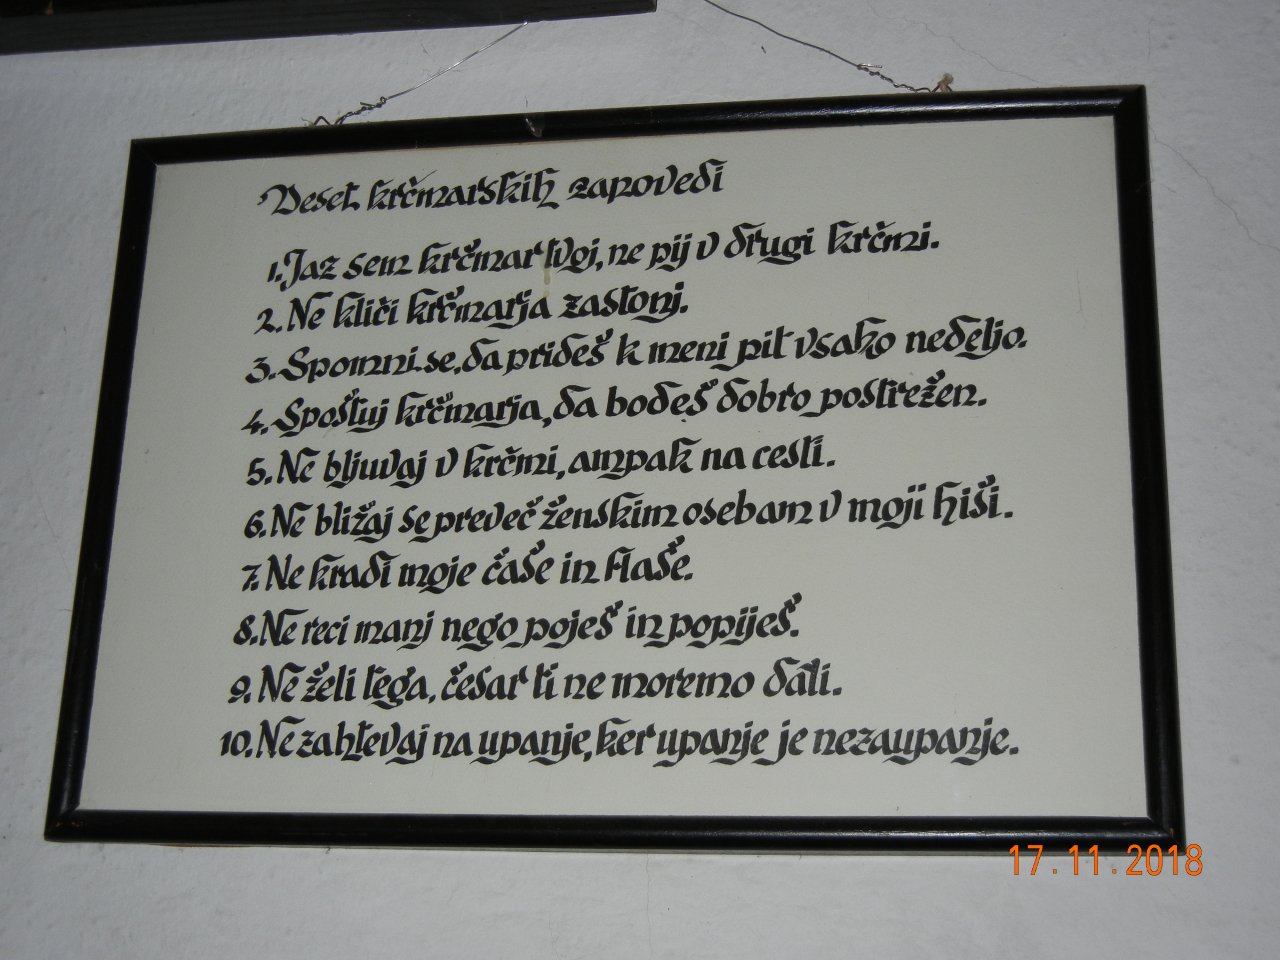 Deset krčmarskih zapovedi
1. Jaz sem krčmar tvoj, ne pij v drugi krčmi.
2. Ne kliči krčmarja zastonj.
3. Spomni se, da prideš k meni pit vsako nedeljo.
4. Spoštuj krčmarja, da bodeš dobro postrežen.
5. Ne bljuvaj v krčmi, ampak na cesti.
6. Ne bližaj se preveč ženskim osebam v moji hiši.
7. Ne kradi moje čaše in flaše.
8. Ne reci manj nego poješ in popiješ.
9. Ne želi tega, česar ti ne moremo dati.
10. Ne zahtevaj na upanje, ker upanje je nezaupanje.
17.11.2018